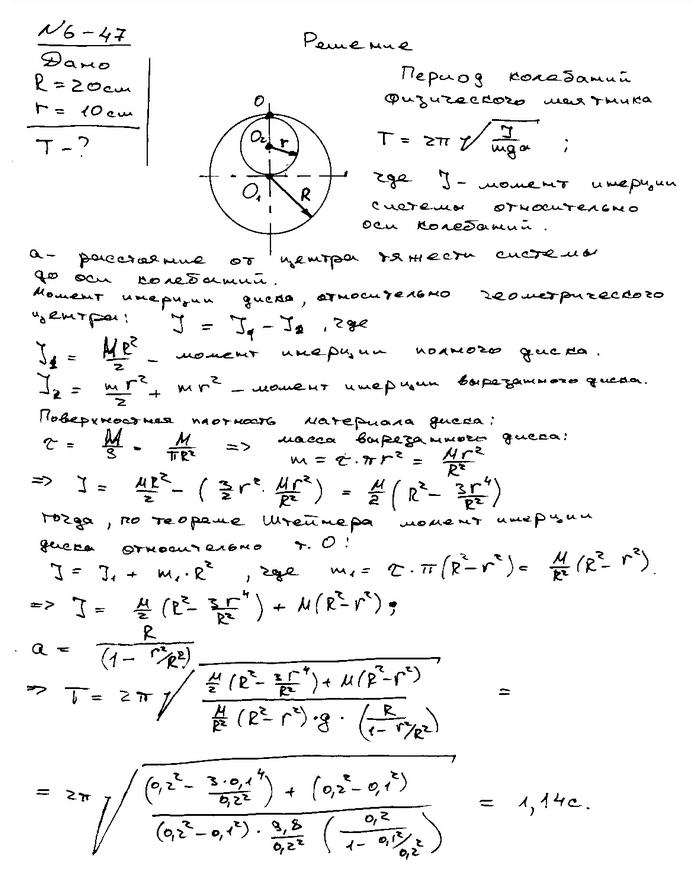 N6-47
Дано
R = 20см
r = 10см
T - ?
Решение
O
O₂
r
O₁
R
Период колебаний
физического маятника
T = 2π√(J/mga) ;
где J - момент инерции
системы относительно
оси колебаний.
a - расстояние от центра тяжести системы
до оси колебаний.
Момент инерции диска, относительно геометрического
центра: J = J₁ - J₂, где
J₁ = MR²/2 - момент инерции полного диска.
J₂ = mr²/2 + mr² - момент инерции вырезанного диска.
Поверхностная плотность материала диска:
τ = M/S = M/πR² => масса вырезанного диска:
m = τ·πr² = Mr²/R²
=> J = MR²/2 - (3/2 r² · Mr²/R²) = M/2 (R² - 3r⁴/R²)
тогда, по теореме Штейнера момент инерции
диска относительно т. O:
J = J₁ + m₁·R², где m₁ = τ·π(R²-r²) = M/R² (R² - r²).
=> J = M/2 (R² - 3r⁴/R²) + M(R²-r²);
a = R/(1 - r²/R²)
=> T = 2π√((M/2 (R² - 3r⁴/R²) + M(R²-r²))/(M/R² (R²-r²)·g·(R/(1-r²/R²)))) =
= 2π√(((0,2² - 3·0,1⁴/0,2²) + (0,2²-0,1²))/((0,2²-0,1²)·9,8/0,2² (0,2/(1-0,1²/0,2²)))) = 1,14с.